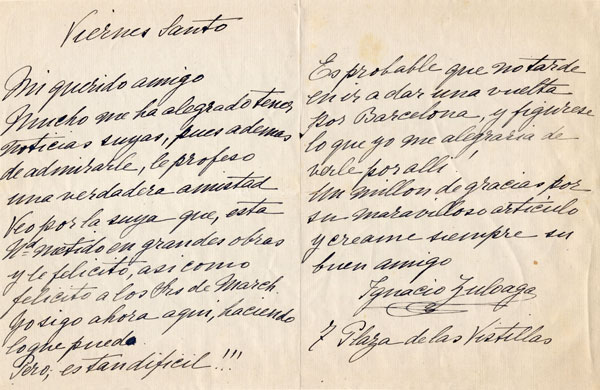 Viernes Santo
Mi querido amigo
Mucho me ha alegrado tener
noticias suyas, pues ademas
de admirarle, le profeso
una verdadera amistad
Veo por la suya que, esta
Vd. metido en grandes obras
y le felicito, asi como
felicito a los Srs de March.
Yo sigo ahora aqui, haciendo
lo que puedo.
Pero; es tan dificil!!!
Es probable que no tarde
en ir a dar una vuelta
por Barcelona, y figurese
lo que yo me alegraria de
verle por alli
Un millon de gracias por
su maravilloso artículo
y creame siempre su
buen amigo
Ignacio Zuloaga
7 Plaza de las Vistillas